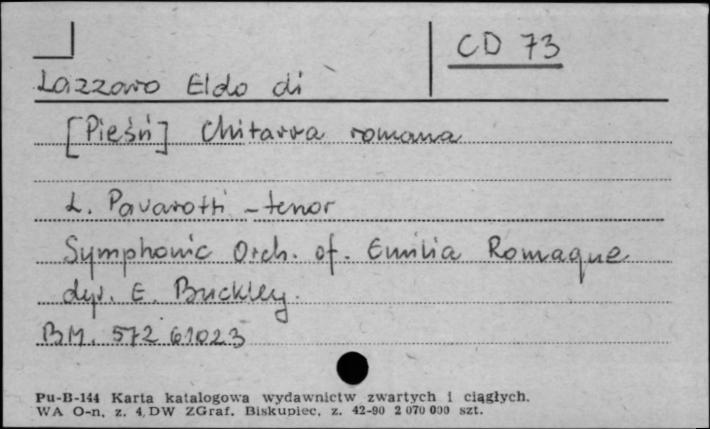 CD 73
Lazzaro Eldo di
[Pieśń] Chitarra romana
L. Pavarotti - tenor
Symphonic Orch. of. Emilia Romaque
dyr. E. Buckley.
BM. 572 61023
Pu-B-144 Karta katalogowa wydawnictw zwartych i ciągłych.
WA O-n, z. 4, DW ZGraf. Biskupiec, z. 42-90 2 070 000 szt.